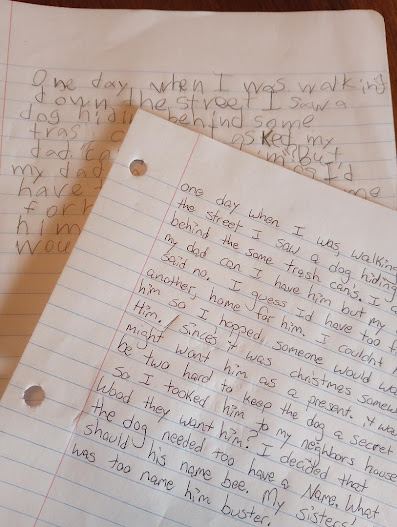 One day when I was walking
down the street I saw a
dog hiding behind some
asked my
dad but
my dad I'd
have
for
him
wou
one day when I was walking
the street I saw a dog hiding
behind the some trash can's. I
my dad can I have him but my
said no. I guess I'd have too
another, home for him. I couldnt
him so I hopped, someone would
Him. since's it was christmas
might want him as a present. it
be two hard to keep the dog a secret
So I tooked him to my neighbors house
Wood they want him? I decided that
the dog needed too have a Name. What
should his name bee. My sister
was too name him buster.